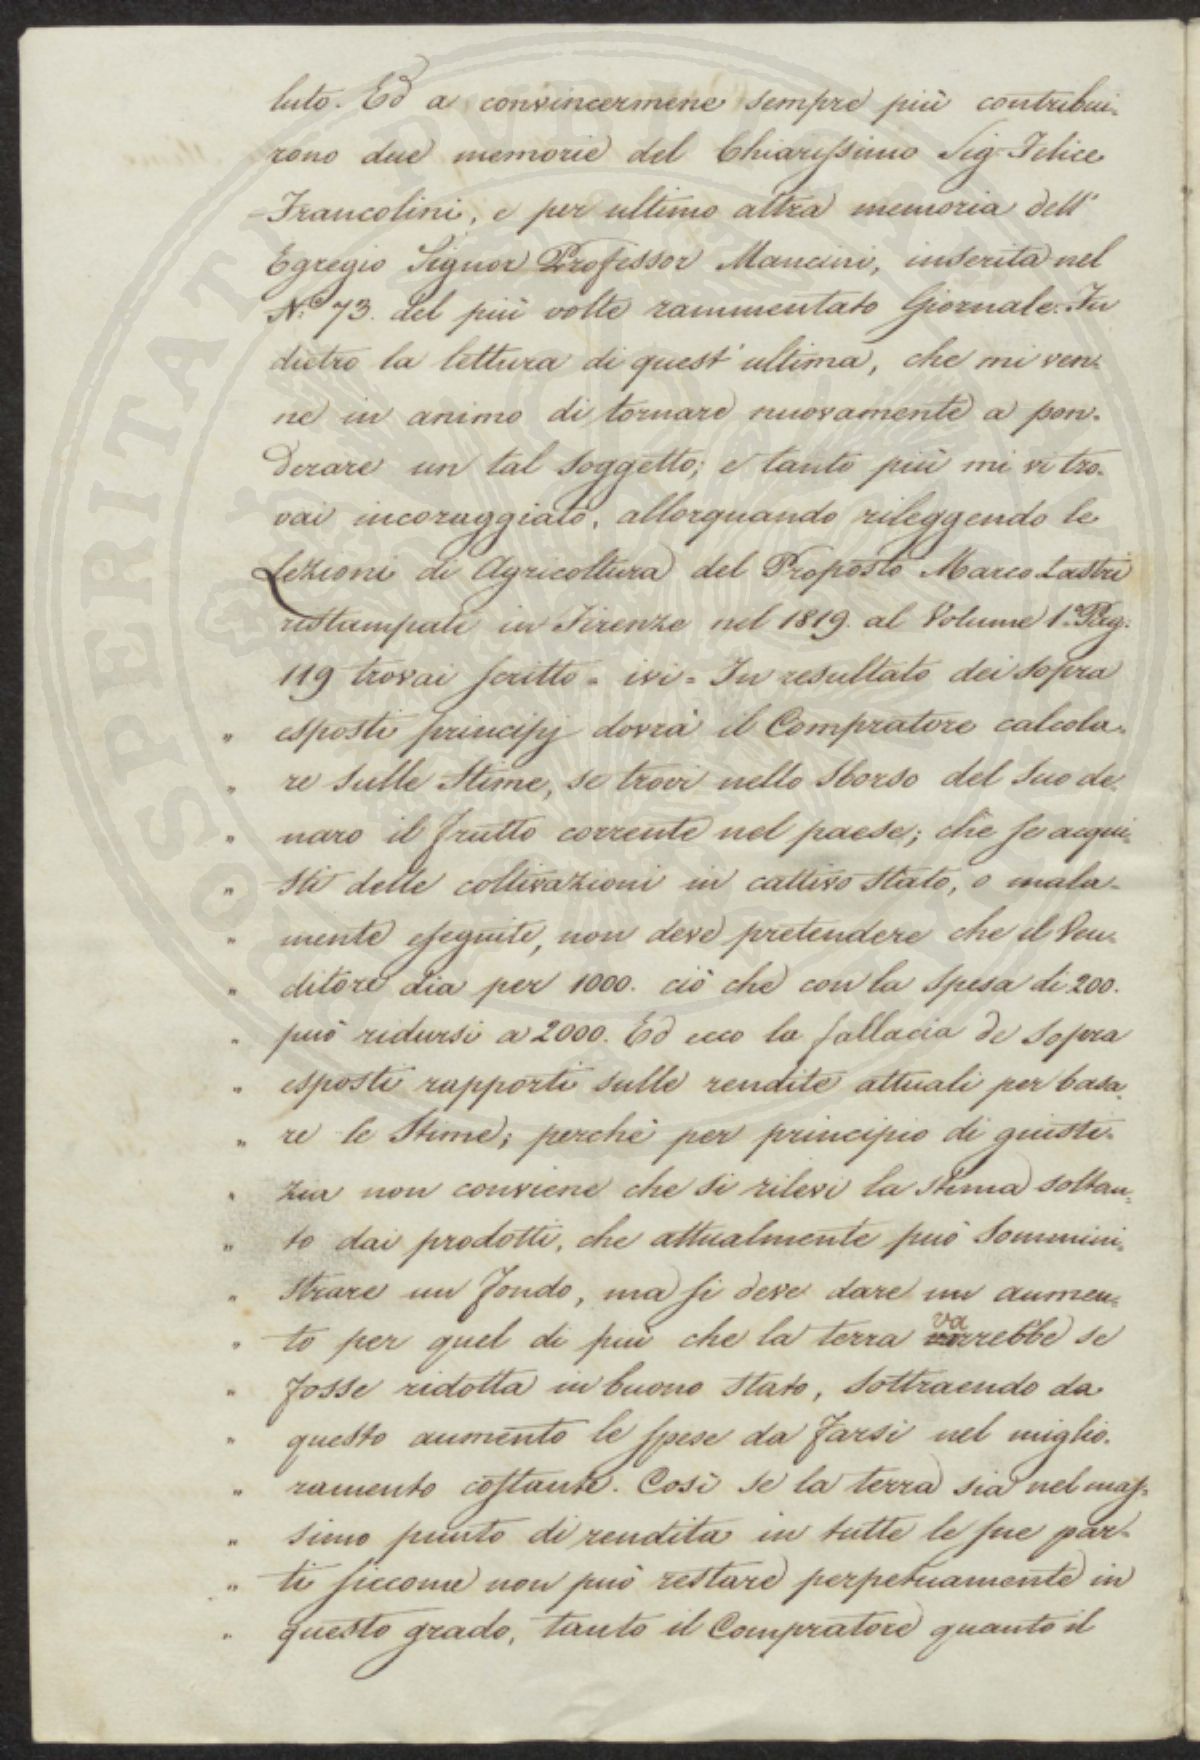 luto. Ed a convincermene sempre più contribui-
rono due memorie del Chiarissimo Sig. Felice
Francolini, e per ultimo altra memoria dell'
Egregio Signor Professor Mancini, inserita nel
N.º 73. del più volte rammentato Giornale. Fu
dietro la lettura di quest'ultima, che mi ven-
ne in animo di tornare nuovamente a pon-
derare un tal soggetto; e tanto più mi vi tro-
vai incoraggiato, allorquando rileggendo le
Lezioni di Agricoltura del Proposto Marco Lastri
ristampate in Firenze nel 1819. al Volume 1.º Pag.
119 trovai scritto = ivi = In resultato dei sopra
" esposti principj dovrà il Compratore calcola-
" re sulle Stime, se trovi nello sborso del suo de-
" naro il frutto corrente nel paese; che se acqui-
" sti delle coltivazioni in cattivo stato, o mala-
" mente eseguite, non deve pretendere che il Ven-
" ditore dia per 1000. ciò che con la spesa di 200.
" può ridursi a 2000. Ed ecco la fallacia de sopra
" esposti rapporti sulle rendite attuali per basa-
" re le Stime; perchè per principio di giusti-
" zia non conviene che si rilevi la stima soltan-
" to dai prodotti, che attualmente può sommini-
" strare un fondo, ma si deve dare un aumen-
" to per quel di più che la terra varrebbe se
" fosse ridotta in buono stato, sottraendo da
" questo aumento le spese da farsi nel miglio-
" ramento costante. Così se la terra sia nel mas-
" simo punto di rendita in tutte le sue par-
" ti siccome non può restare perpetuamente in
" questo grado, tanto il Compratore quanto il